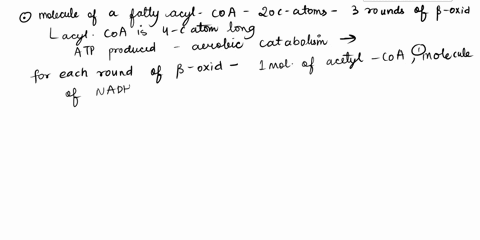 ⊙ molecule of a fatty acyl-CoA - 20 C-atoms - 3 rounds of β-oxid
↳ acyl CoA is 4-C atom long
ATP produced - aerobic catabolism →
for each round of β-oxid - 1 mol. of acetyl-CoA, ① molecule
of NADH